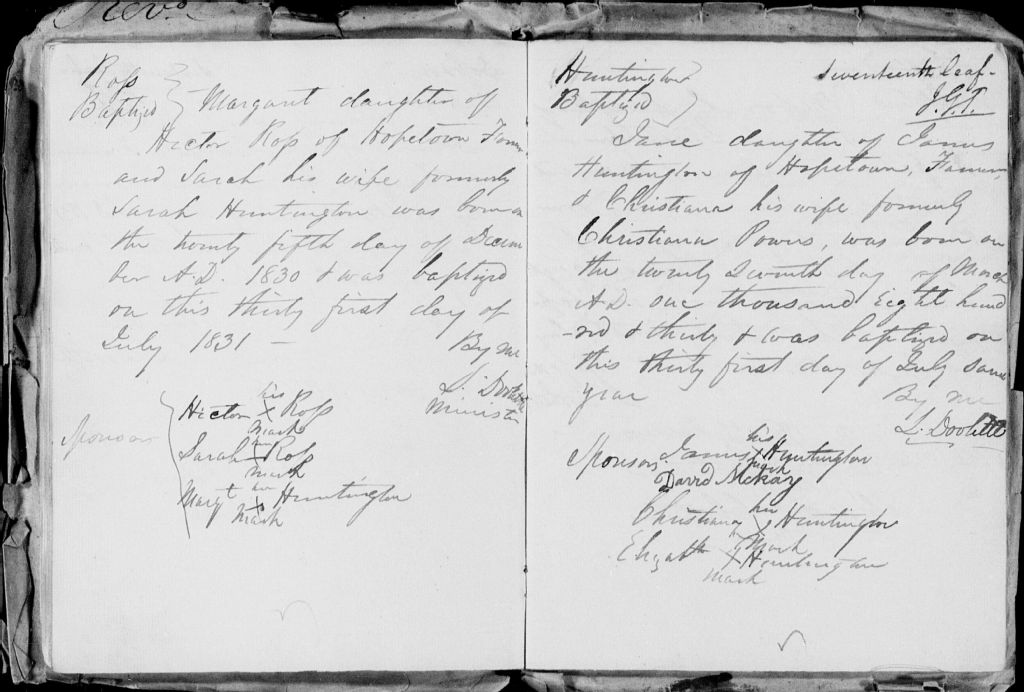 Revd
Ross
Baptized
Margaret daughter of
Hector Ross of Hopetown Farmer
and Sarah his wife formerly
Sarah Huntington was born on
the twenty fifth day of Decem
ber A.D. 1830 & was baptized
on this thirty first day of
July 1831 —
By me
L. Doolittle
Minister
Sponsors
his
Hector X Ross
mark
her
Sarah X Ross
mark
her
Margt X Huntington
mark
seventeenth leaf.
J.G.T.
Huntington
Baptized
Jane daughter of James
Huntington of Hopetown, Farmer,
& Christiana his wife formerly
Christiana Powers, was born on
the twenty seventh day of March
A.D. one thousand Eight hund
-red & thirty & was baptized on
this thirty first day of July same
year
By me
L. Doolittle
his
Sponsors James X Huntington
mark
David McKay
her
Christiana X Huntington
mark
Elizabth X Huntington
mark